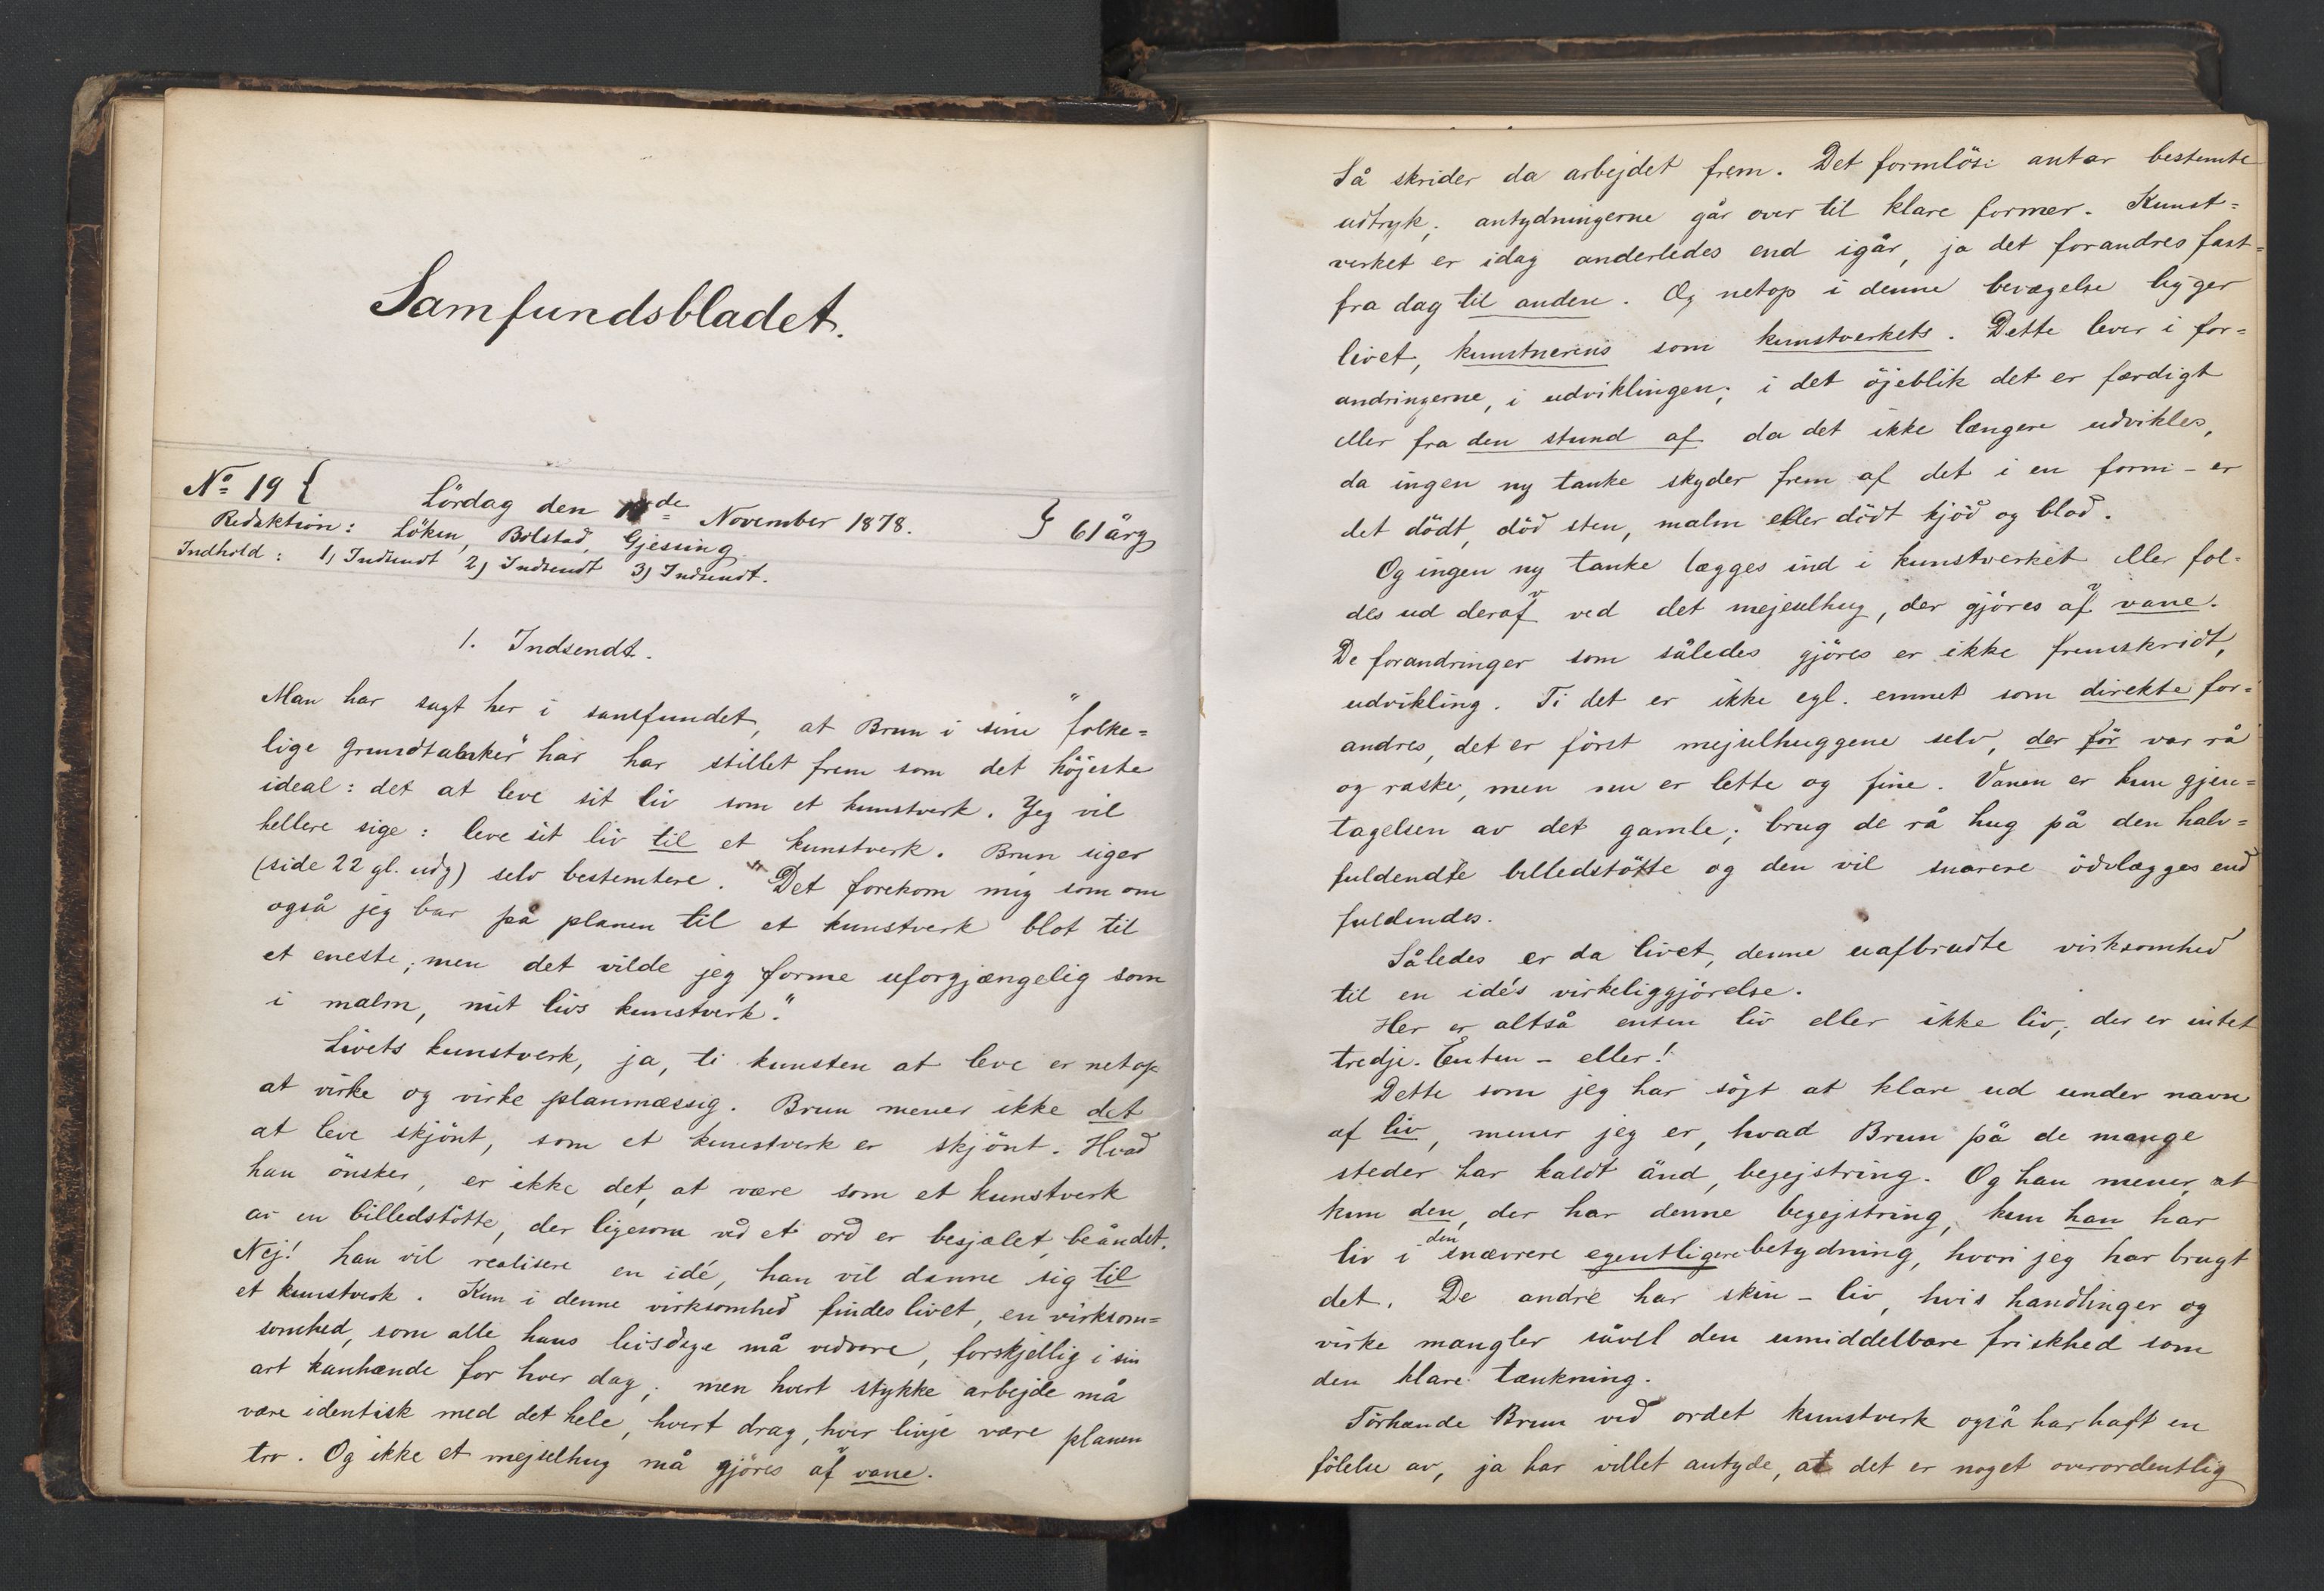 Samfundsbladet.
No 19 {
Lördag den de November 1878.
} 61 årg
Redaktion: Löken, Bolstad, Gjessing.
Indhold: 1) Indsendt 2) Indsendt 3) Indsendt.
1. Indsendt.
Man har sagt her i samfundet, at Brun i sine "folke=
lige grundtanker" har har stillet frem som det höjeste
ideal: det at leve sit liv som et kunstverk. Jeg vil
hellere sige: leve sit liv til et kunstverk. Brun siger
(side 22 gl. udg) selv bestemtere. "Det forekom mig som om
også jeg bar på planen til et kunstverk blot til
et eneste; men det vilde jeg forme uforgjængelig som
i malm, mit livs kunstverk."
Livets kunstverk, ja, ti kunsten at leve er netop
at virke og virke planmæssig. Brun mener ikke det
at leve skjönt, som et kunstverk er skjönt. Hvad
han önsker, er ikke det, at være som et kunstverk
av en billedstötte, der ligesom ved et ord er besjælet, beåndet.
Nej! han vil realisere en idé, han vil danne sig til
et kunstverk. Kun i denne virksomhed findes livet, en virksom=
somhed, som alle hans livsdage må vedvare, forskjellig i sin
art kanhænde for hver dag; men hvert stykke arbejde må
være identisk med det hele, hvert drag, hver linje være planen
tro. Og ikke et mejselhug må gjöres af vane.
Så skrider da arbejdet frem. Det formlöse antar bestemte
udtryk; antydningerne går over til klare former. Kunst=
verket er idag anderledes end igår, ja det forandres fast=
fra dag til anden. Og netop i denne bevægelse ligger
livet, kunstnerens som kunstverkets. Dette lever i for=
andringerne, i udviklingen; i det öjeblik det er færdigt
eller fra den stund af da det ikke længere udvikles,
da ingen ny tanke skyder frem af det i en form - er
det dödt, död sten, malm eller dödt kjöd og blod.
Og ingen ny tanke lægges ind i kunstverket eller fol=
des ud deraf ved det mejselhug, der gjöres af vane.
De forandringer som således gjöres er ikke fremskridt,
udvikling. Ti det er ikke egl. emnet som direkte for=
andres, det er först mejselhuggene selv, der för var rå
og raske, men nu er lette og fine. Vanen er kun gjen=
tagelsen av det gamle; brug de rå hug på den halv=
fuldendte billedstötte og den vil snarere ödelægges end
fuldendes.
Således er da livet, denne uafbrudte virksomhed
til en idé's virkeliggjörelse.
Her er altså enten liv eller ikke liv; der er intet
tredje. Enten - eller!
Dette som jeg har sögt at klare ud under navn
af liv, mener jeg er, hvad Brun på de mange
steder har kaldt ånd, begejstring. Og han mener, at
kun den, der har denne begejstring, kun han har
liv i den snævrere egentligere betydning, hvori jeg har brugt
det. De andre har skin - liv, hvis handlinger og
virke mangler såvel den umiddelbare friskhed som
den klare tænkning.
Törhænde Brun ved ordet kunstverk også har haft en
fölelse av, ja har villet antyde, at det er noget overordentlig